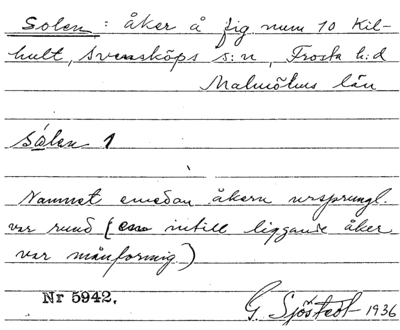 Solen : åker å fig num 10 Kil-
hult, Svensköps s:n, Frosta h:d
Malmöhus län
Sólen 1
Namnet emedan åkern ursprungl.
var rund ( intill liggande åker
var månformig)
Nr 5942.
G. Sjöstedt 1936